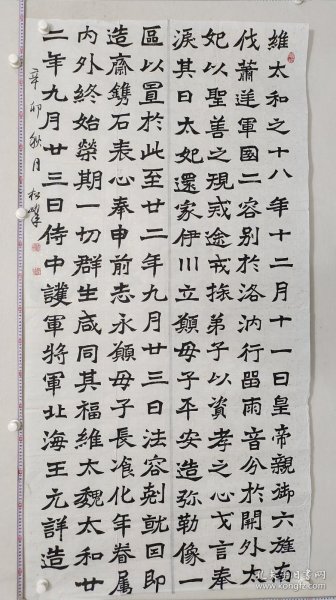 維太和之十八年十二月十一日皇帝親御六旌南
伐蕭逆軍國二容别於洛汭行留雨音分於開外太
妃以聖善之規戒途戒旅弟子以資孝之心戈言奉
淚其日太妃還家伊川立願母子平安造弥勒像一
區以置於此至廿二年九月廿三日法容剋就因即
造齋鐫石表心奉申前志永願母子長飡化年眷属
内外終始榮期一切群生咸同其福維太魏太和廿
二年九月廿三日侍中護軍將軍北海王元詳造
辛卯秋月